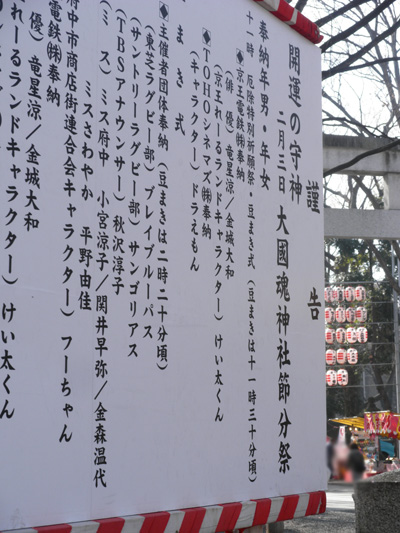 謹告
開運の守神
二月三日 大國魂神社節分祭
奉納年男・年女
十一時 厄除特別祈願祭・豆まき式(豆まきは十一時三十分頃)
◆京王電鉄㈱奉納
(俳 優)竜星涼/金城大和
(京王れーるランドキャラクター)けい太くん
◆TOHOシネマズ㈱奉納
(キャラクター)ドラえもん
まき式
◆主催者団体奉納(豆まきは二時二十分頃)
(東芝ラグビー部)ブレイブルーパス
(サントリーラグビー部)サンゴリアス
(TBSアナウンサー)秋沢淳子
(ミス)ミス府中 小宮涼子/関井早弥/金森温代
ミスさわやか 平野由佳
府中市商店街連合会キャラクター)フーちゃん
電鉄㈱奉納
優)竜星涼/金城大和
れーるランドキャラクター)けい太くん